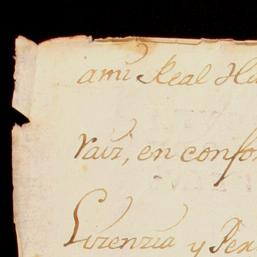 ami Real Ha
ravi, en confor
Lizenzia y Per